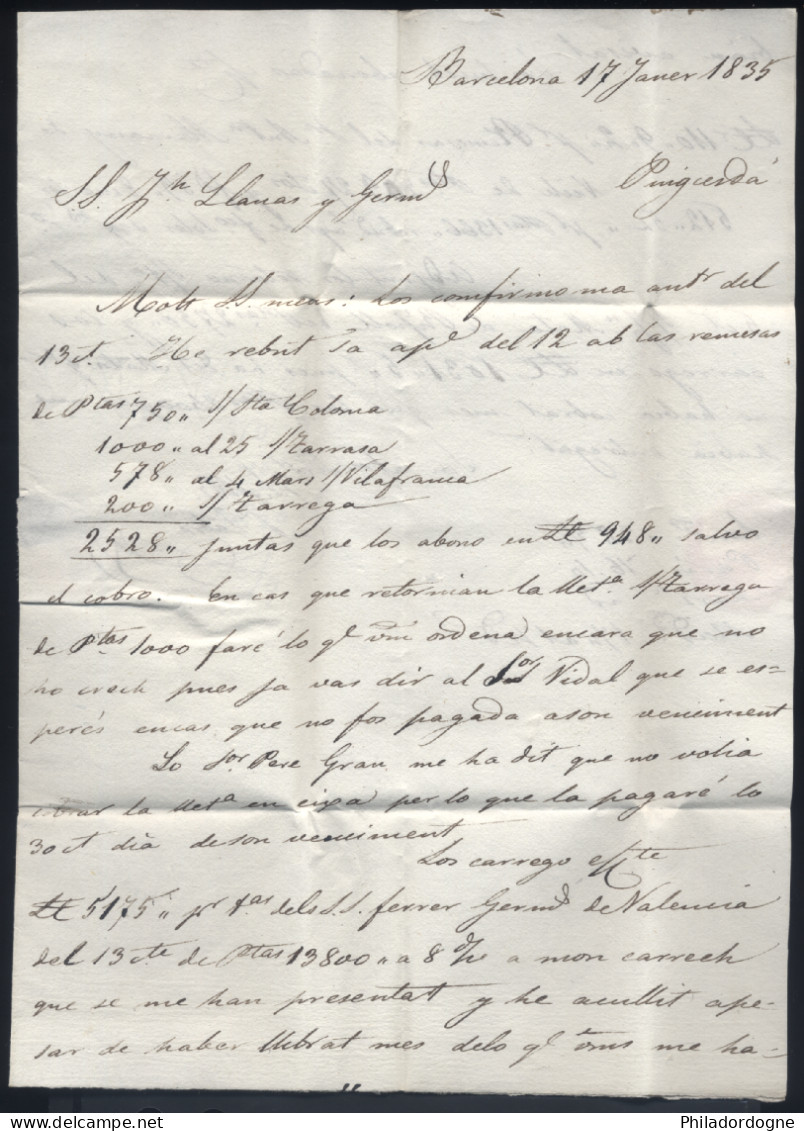 Barcelona 17 Janer 1835
S.S. Jph Llanas y Germs Puigcerdá
Molt S.S. meus: Los comfirmo ma antr del
13 ct. He rebut sa apda del 12 ab las remesas
de Ptas 750,, s/ Sta Coloma
1000,, al 25 s/ Tarrasa
578,, al 4 Mars s/ Vilafranca
200,, s/ Tarrega
2528,, juntas que los abono en 948,, salvo
el cobro. En cas que retornian la lleta s/ Tarrega
de Ptas 1000 faré lo q. vm ordena encara que no
ho crech pues ja vas dir al Sor Vidal que se es=
perés encas que no fos pagada a son venciment
Lo Sor Pere Grau me ha dit que no volia
cobrar la lleta en eixa per lo que la pagaré lo
30 ct dia de son venciment
Los carrego
5175,, pr tas dels S.S. ferrer Germs de Valencia
del 13 cte de Ptas 13800,, a 8 a mon carrech
que se me han presentat y he acullit ape=
sar de haber llibrat mes delo q. vms me ha=
Philadordogne
www.delcampe.net